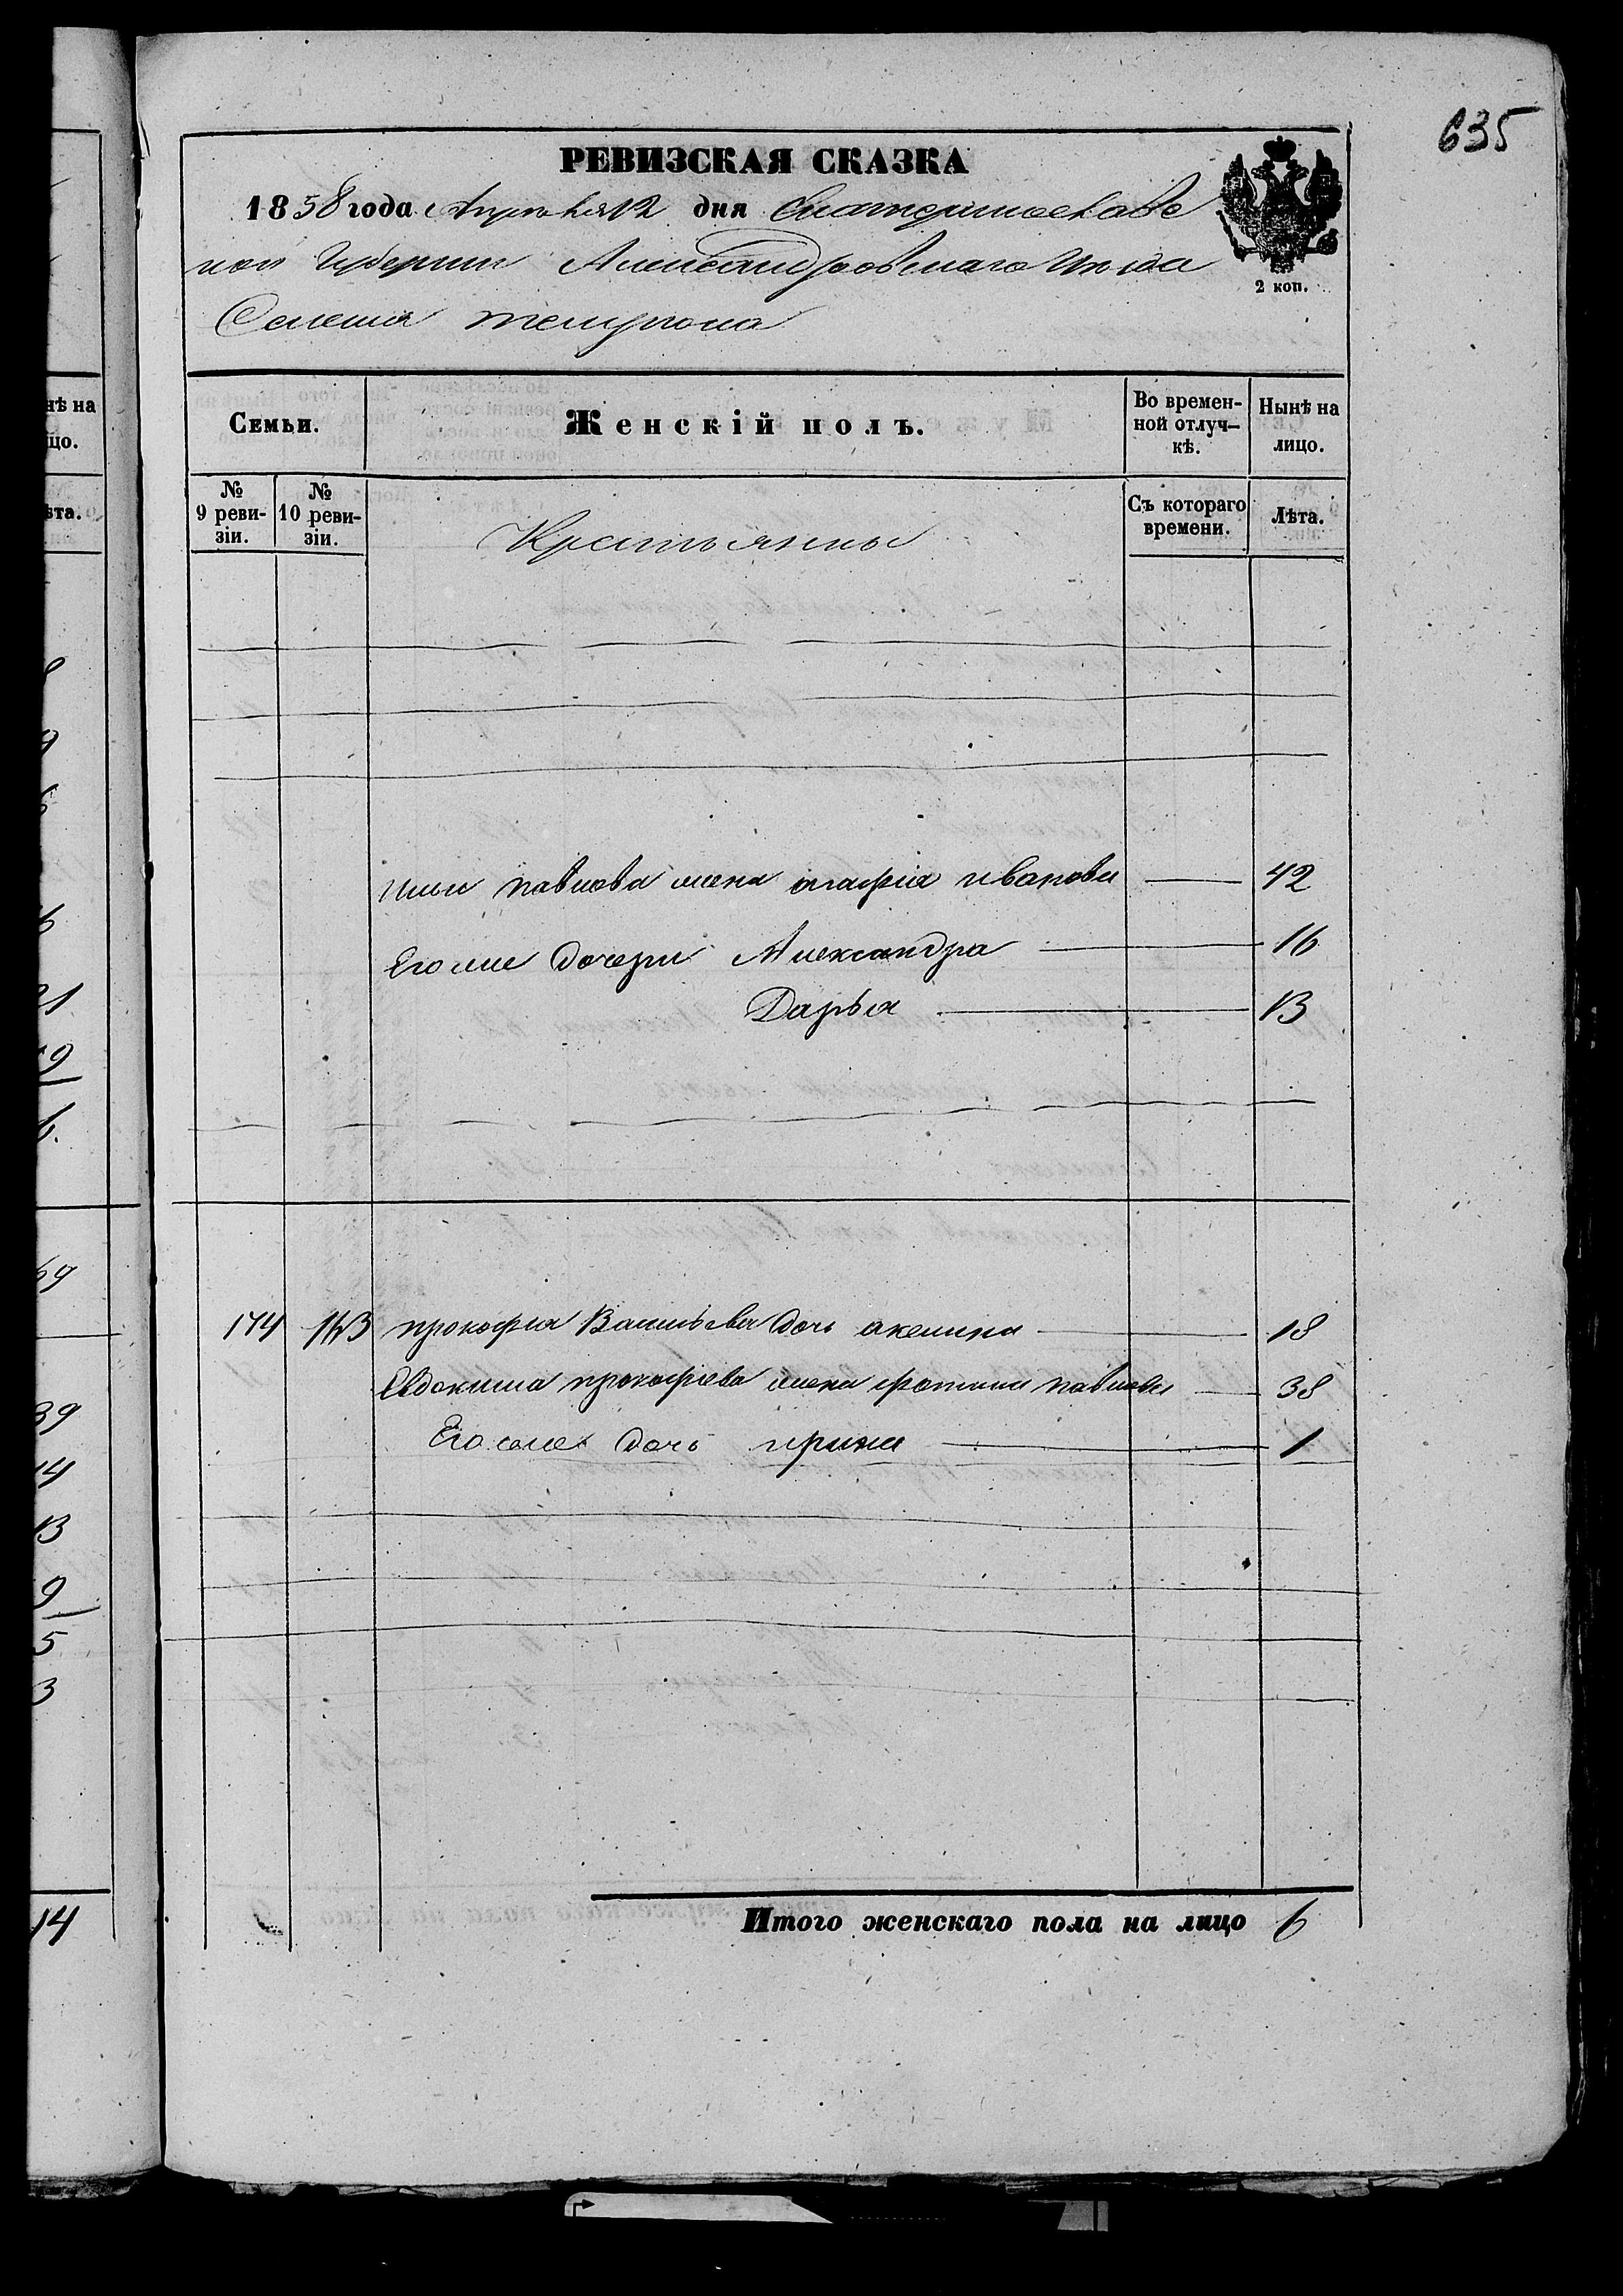 635
РЕВИЗСКАЯ СКАЗКА
1858 года Апреля 12 дня Екатеринославс
кой Губернии Александровскаго Уезда
Селения темрюка
2 коп.
Семьи.
Женскій полъ.
Во времен-
ной отлуч-
кѣ.
Нынѣ на
лицо.
№
9 реви-
зіи.
№
10 реви-
зіи.
Крестьянки
Съ котораго
времени.
Лѣта.
Ильи павлова жена агафiя иванова 42
Его же дочери Александра 16
Дарья 13
174 163 прокофия Васильева дочь акелина 18
Евдокима прокофiева жена фотина павлова 38
Его же дочь ирина 1
Итого женскаго пола на лицо 6
нѣ на
цо.
ѣта.
9
6
21
69
39
14
13
9
5
3
14